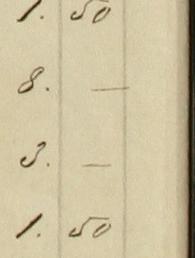 1. 50
8. —
3. —
1. 50